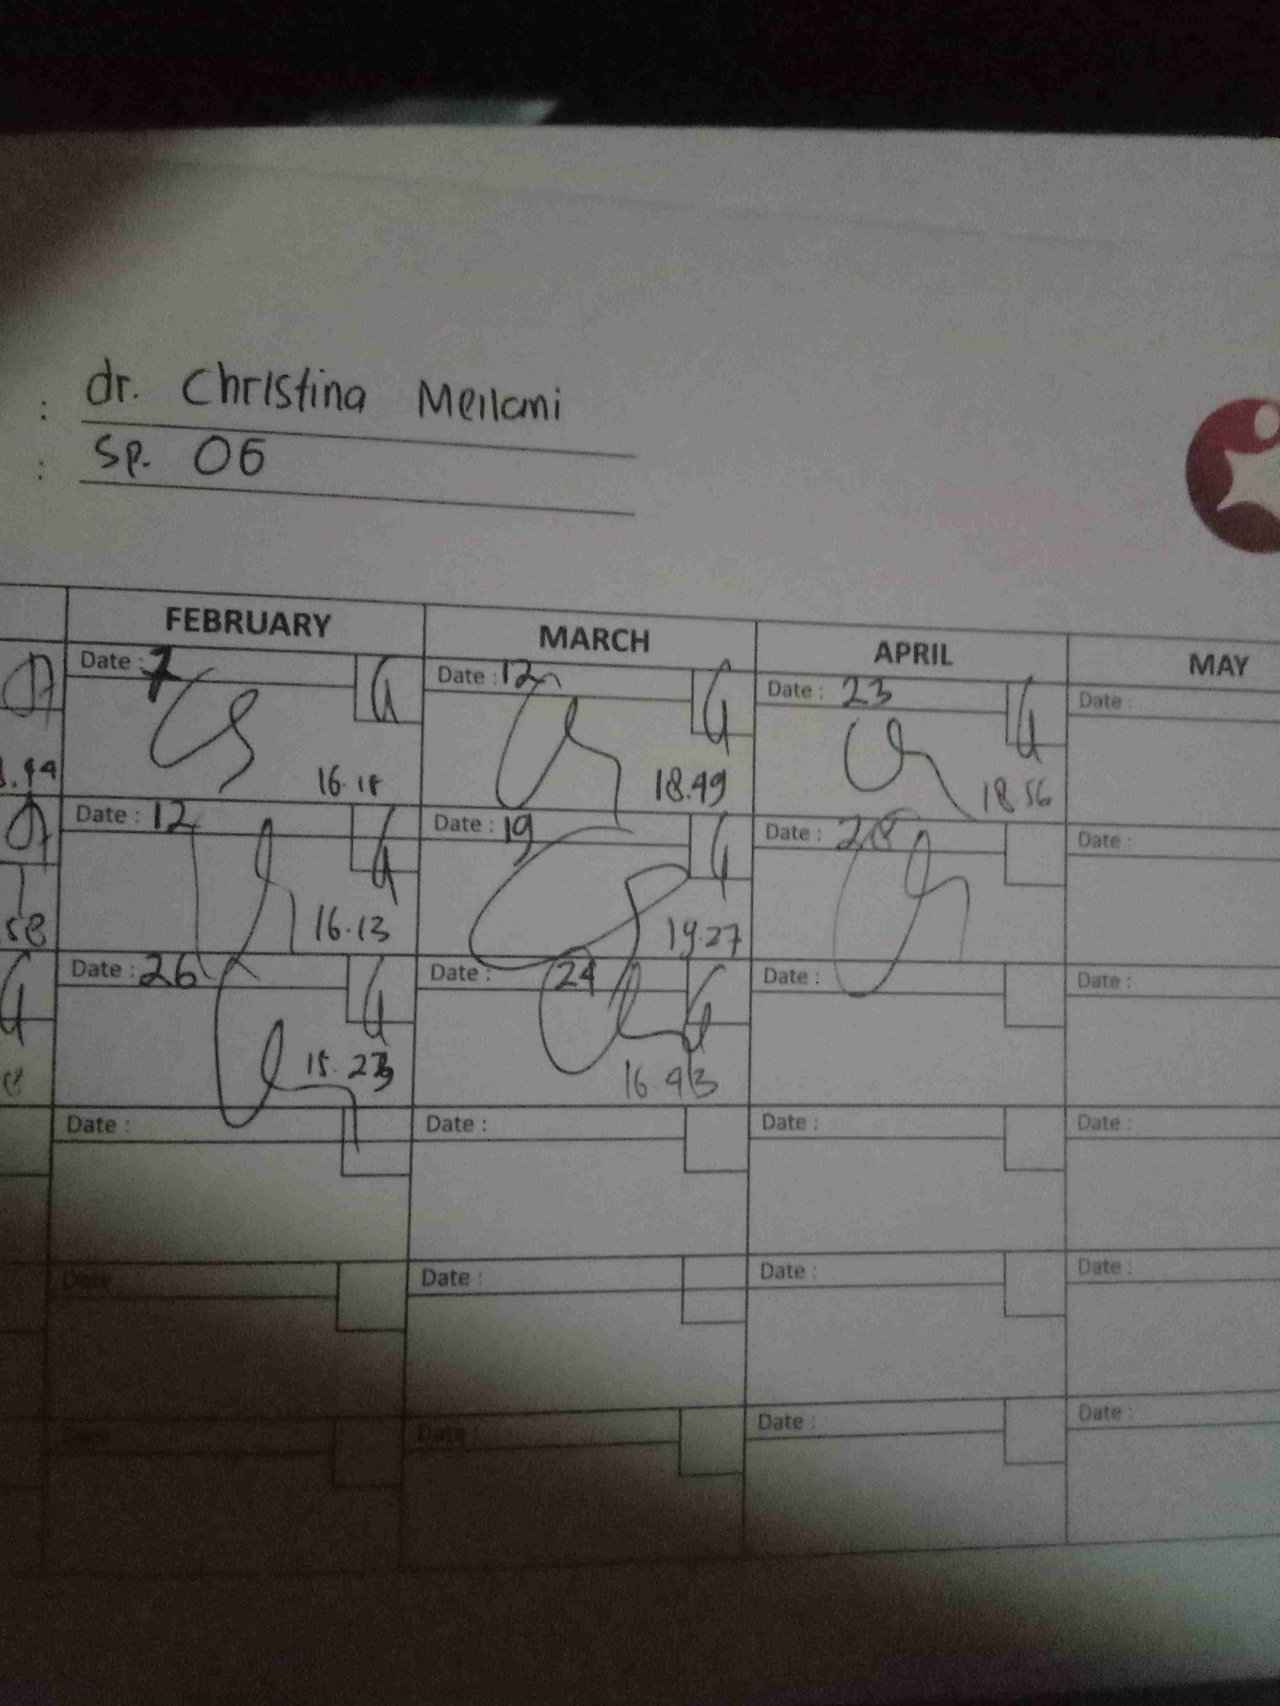 : dr. Christina Meilani
: Sp. OG
FEBRUARY MARCH APRIL MAY
Date : 7 Date : 12 Date : 23 Date :
16.18 18.49 18 56
Date : 12 Date : 19 Date : 28 Date :
58 16.13 19.27
Date : 26 Date : 24 Date : Date :
15. 16.43
Date : Date : Date : Date :
Date Date : Date : Date :
Date : Date : Date :